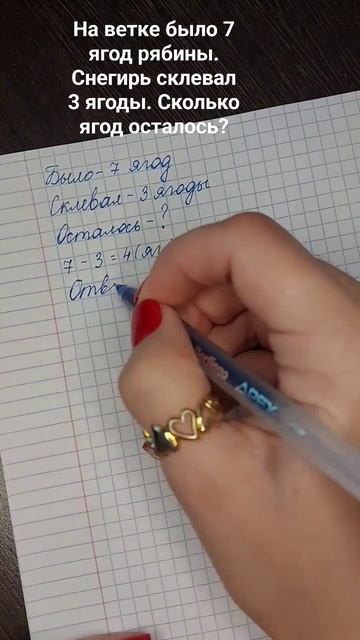 На ветке было 7
ягод рябины.
Снегирь склевал
3 ягоды. Сколько
ягод осталось?
Было - 7 ягод
Склевал - 3 ягоды
Осталось - ?
7 - 3 = 4 (яг
Отв
APEX